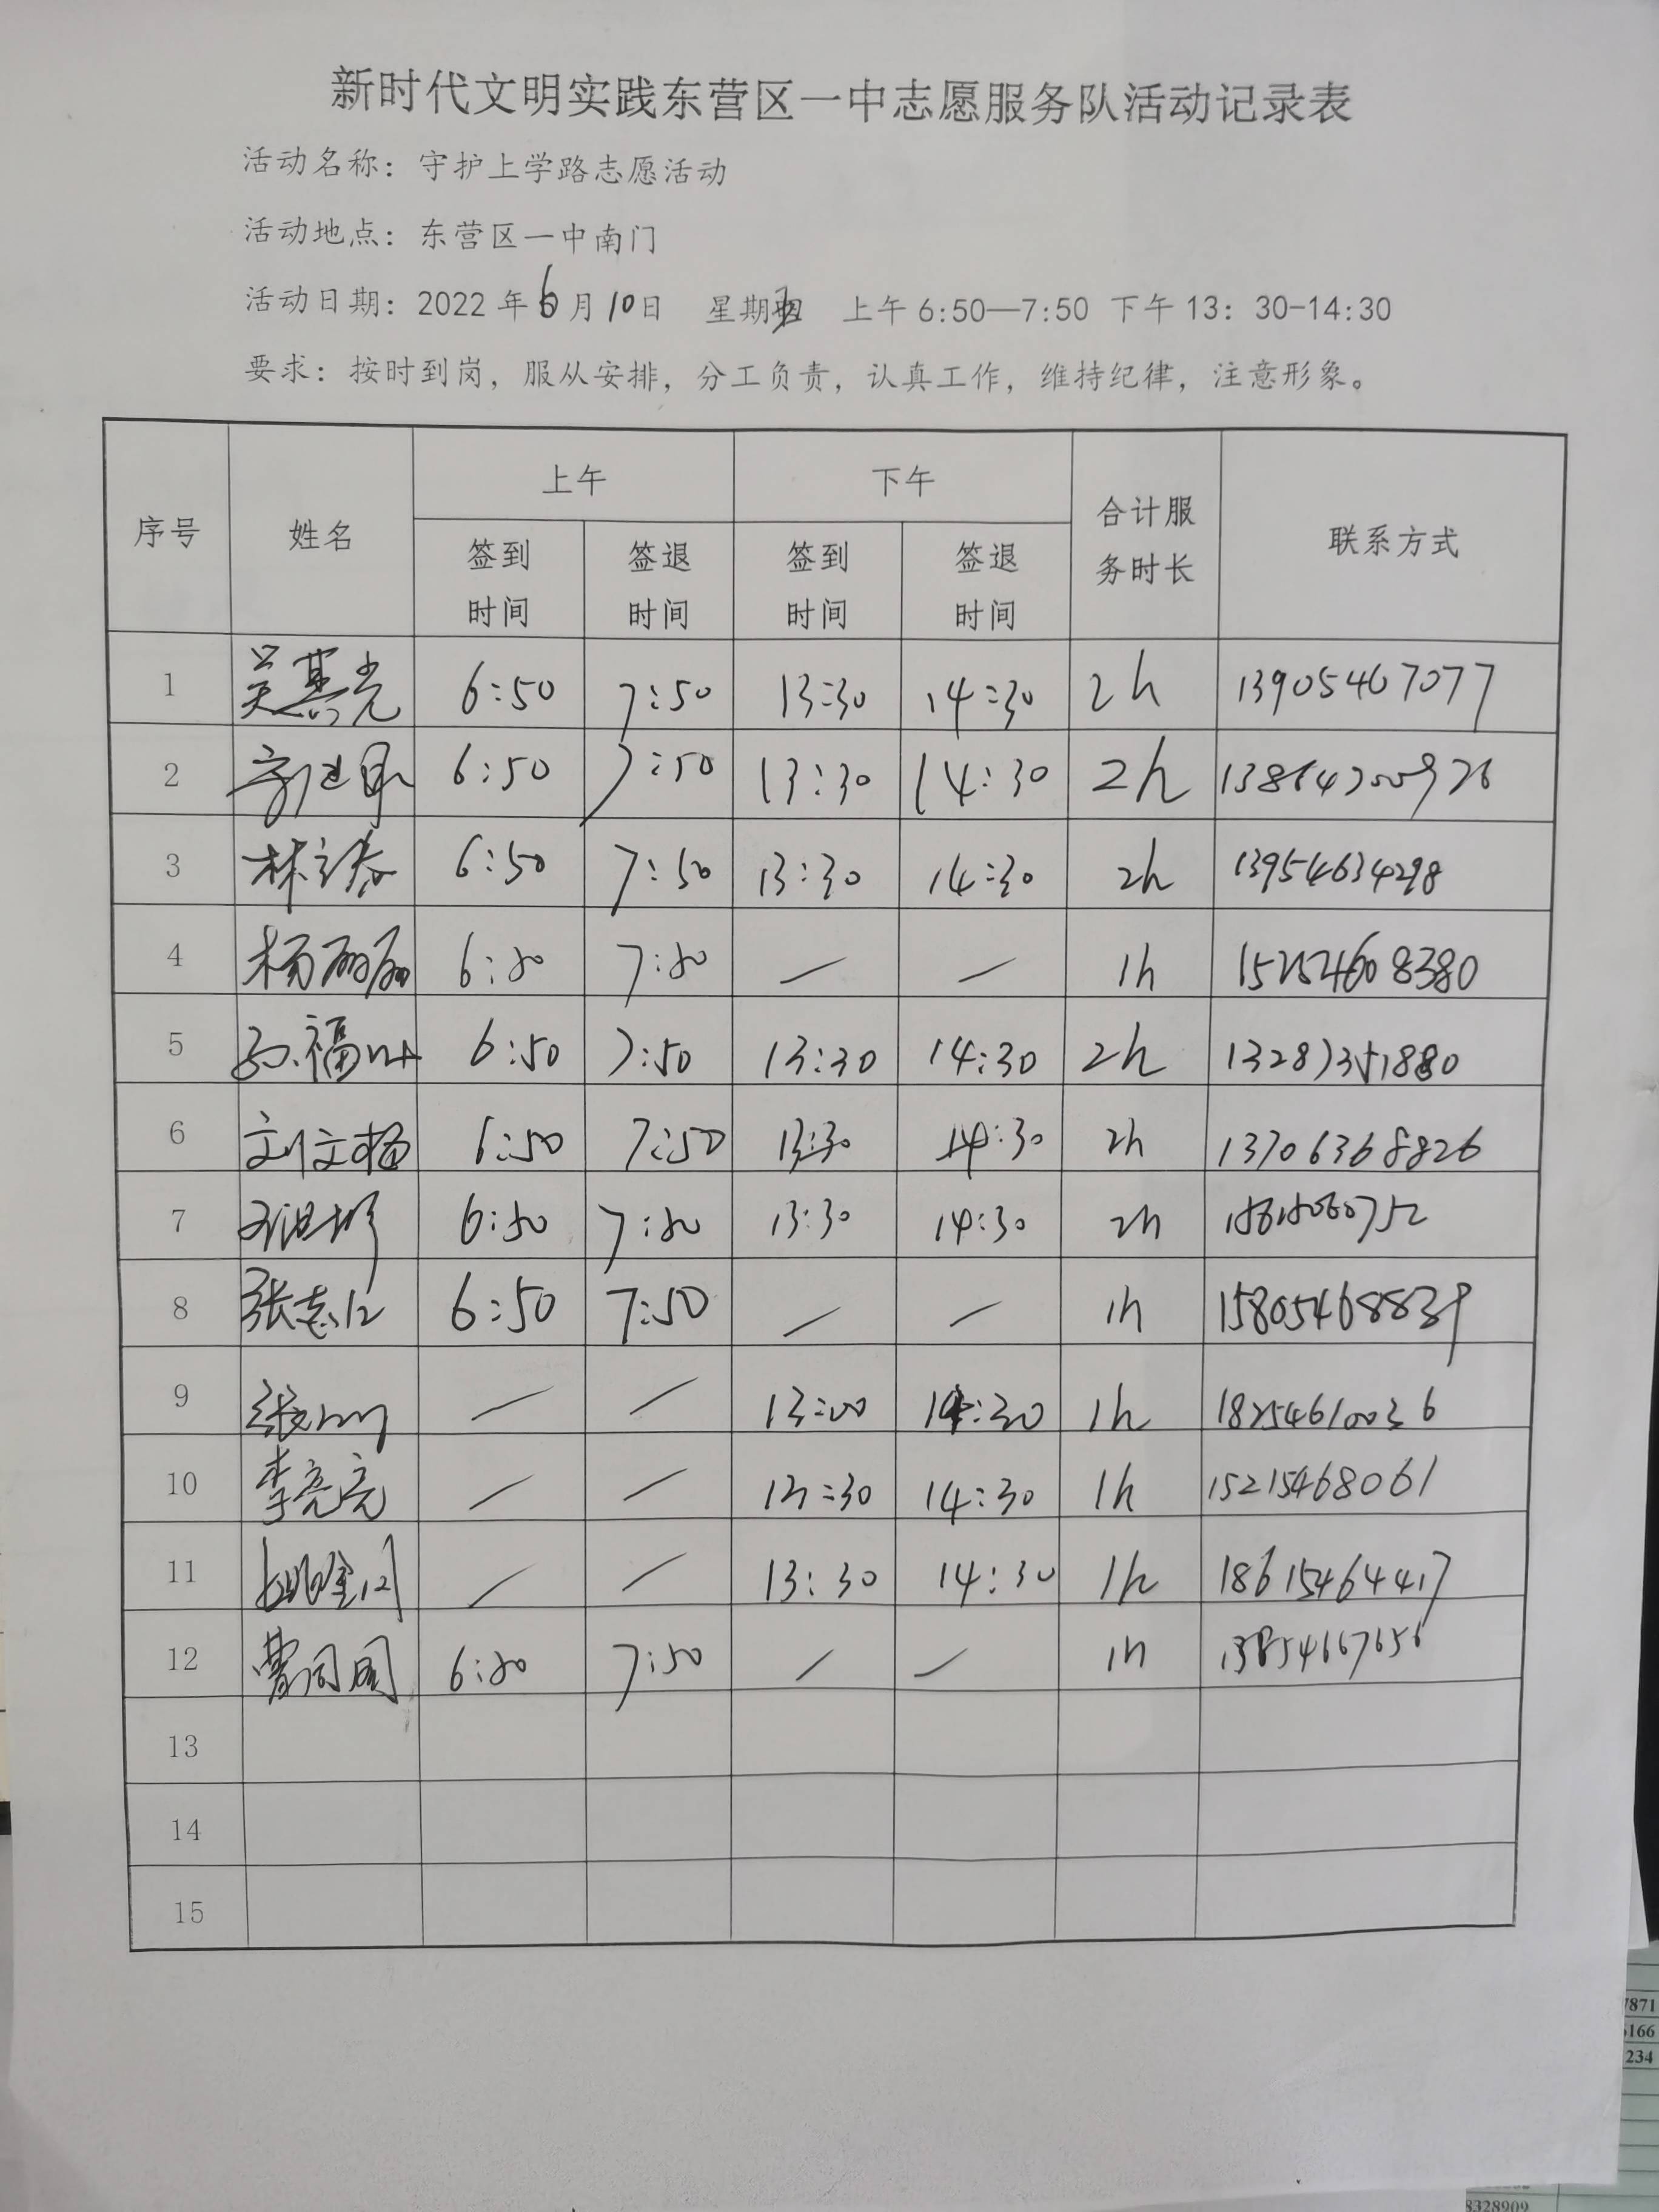 新时代文明实践东营区一中志愿服务队活动记录表
活动名称：守护上学路志愿活动
活动地点：东营区一中南门
活动日期：2022年6月10日 星期五 上午6:50—7:50 下午13：30-14:30
要求：按时到岗，服从安排，分工负责，认真工作，维持纪律，注意形象。
序号 姓名 上午 下午 合计服务时长 联系方式
签到时间 签退时间 签到时间 签退时间
1 吴其光 6:50 7:50 13:30 14:30 2h 13905467077
2 6:50 7:50 13:30 14:30 2h
3 6:50 7:50 13:30 14:30 2h 13954634298
4 杨丽丽 6:50 7:50 — — 1h 15254608380
5 6:50 7:50 13:30 14:30 2h 13287351880
6 刘文杨 6:50 7:50 13:30 14:30 2h 13706368826
7 6:50 7:50 13:30 14:30 2h
8 张志仁 6:50 7:50 — — 1h 15805468839
9 — — 13:00 14:30 1h 18254610036
10 李亮亮 — — 13:30 14:30 1h 15215468061
11 — — 13:30 14:30 1h 18615464417
12 6:50 7:50 — — 1h 13854667656
13
14
15
7871
6166
234
8328909